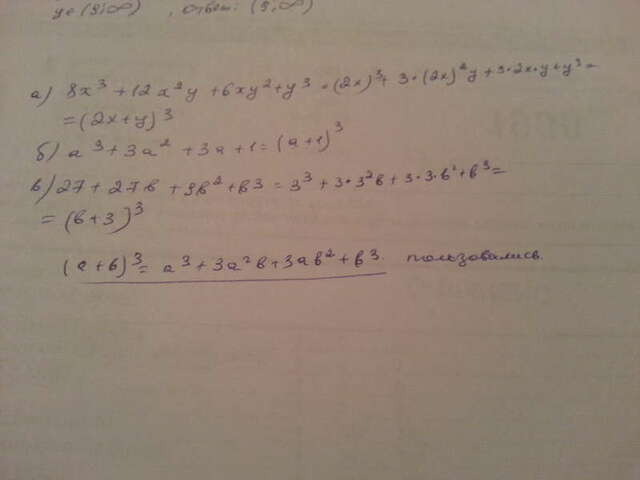 уе(9;∞) , ответ: (9,∞)
а) 8x³ + 12x²y + 6xy² + y³ = (2x)³ + 3·(2x)²y + 3·2x·y + y³ =
= (2x+y)³
б) a³ + 3a² + 3a + 1 = (a+1)³
в) 27 + 27в + 9в² + в3 = 3³ + 3·3²в + 3·3·в² + в³ =
= (в+3)³
(а+в)³ = а³ + 3а²в + 3ав² + в3. пользовались.